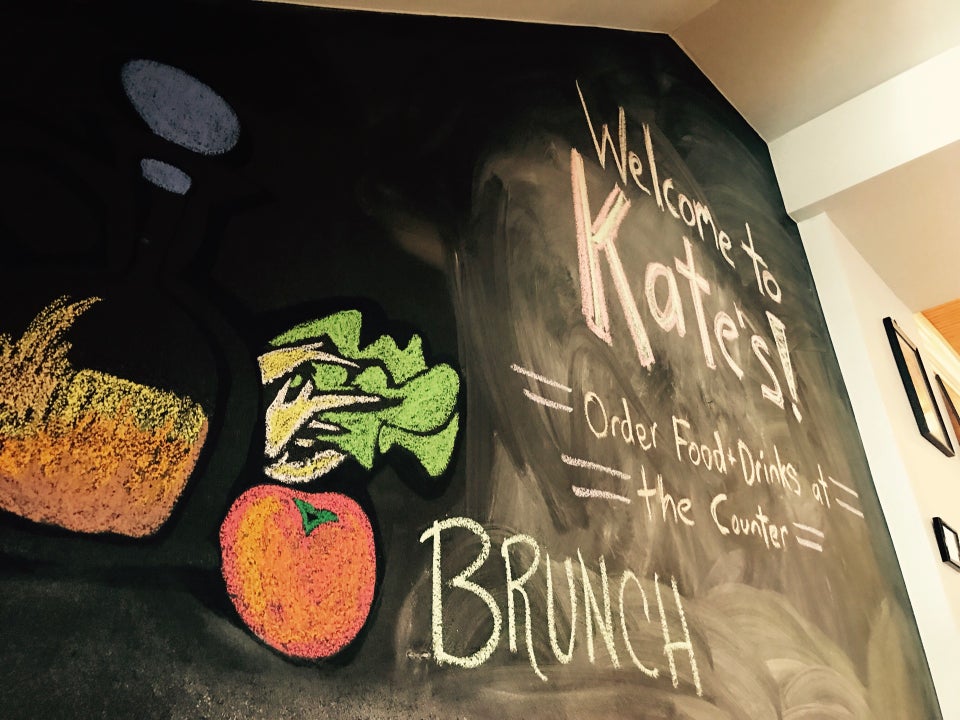 Welcome to
Kate's!
Order Food + Drinks at
the Counter
BRUNCH